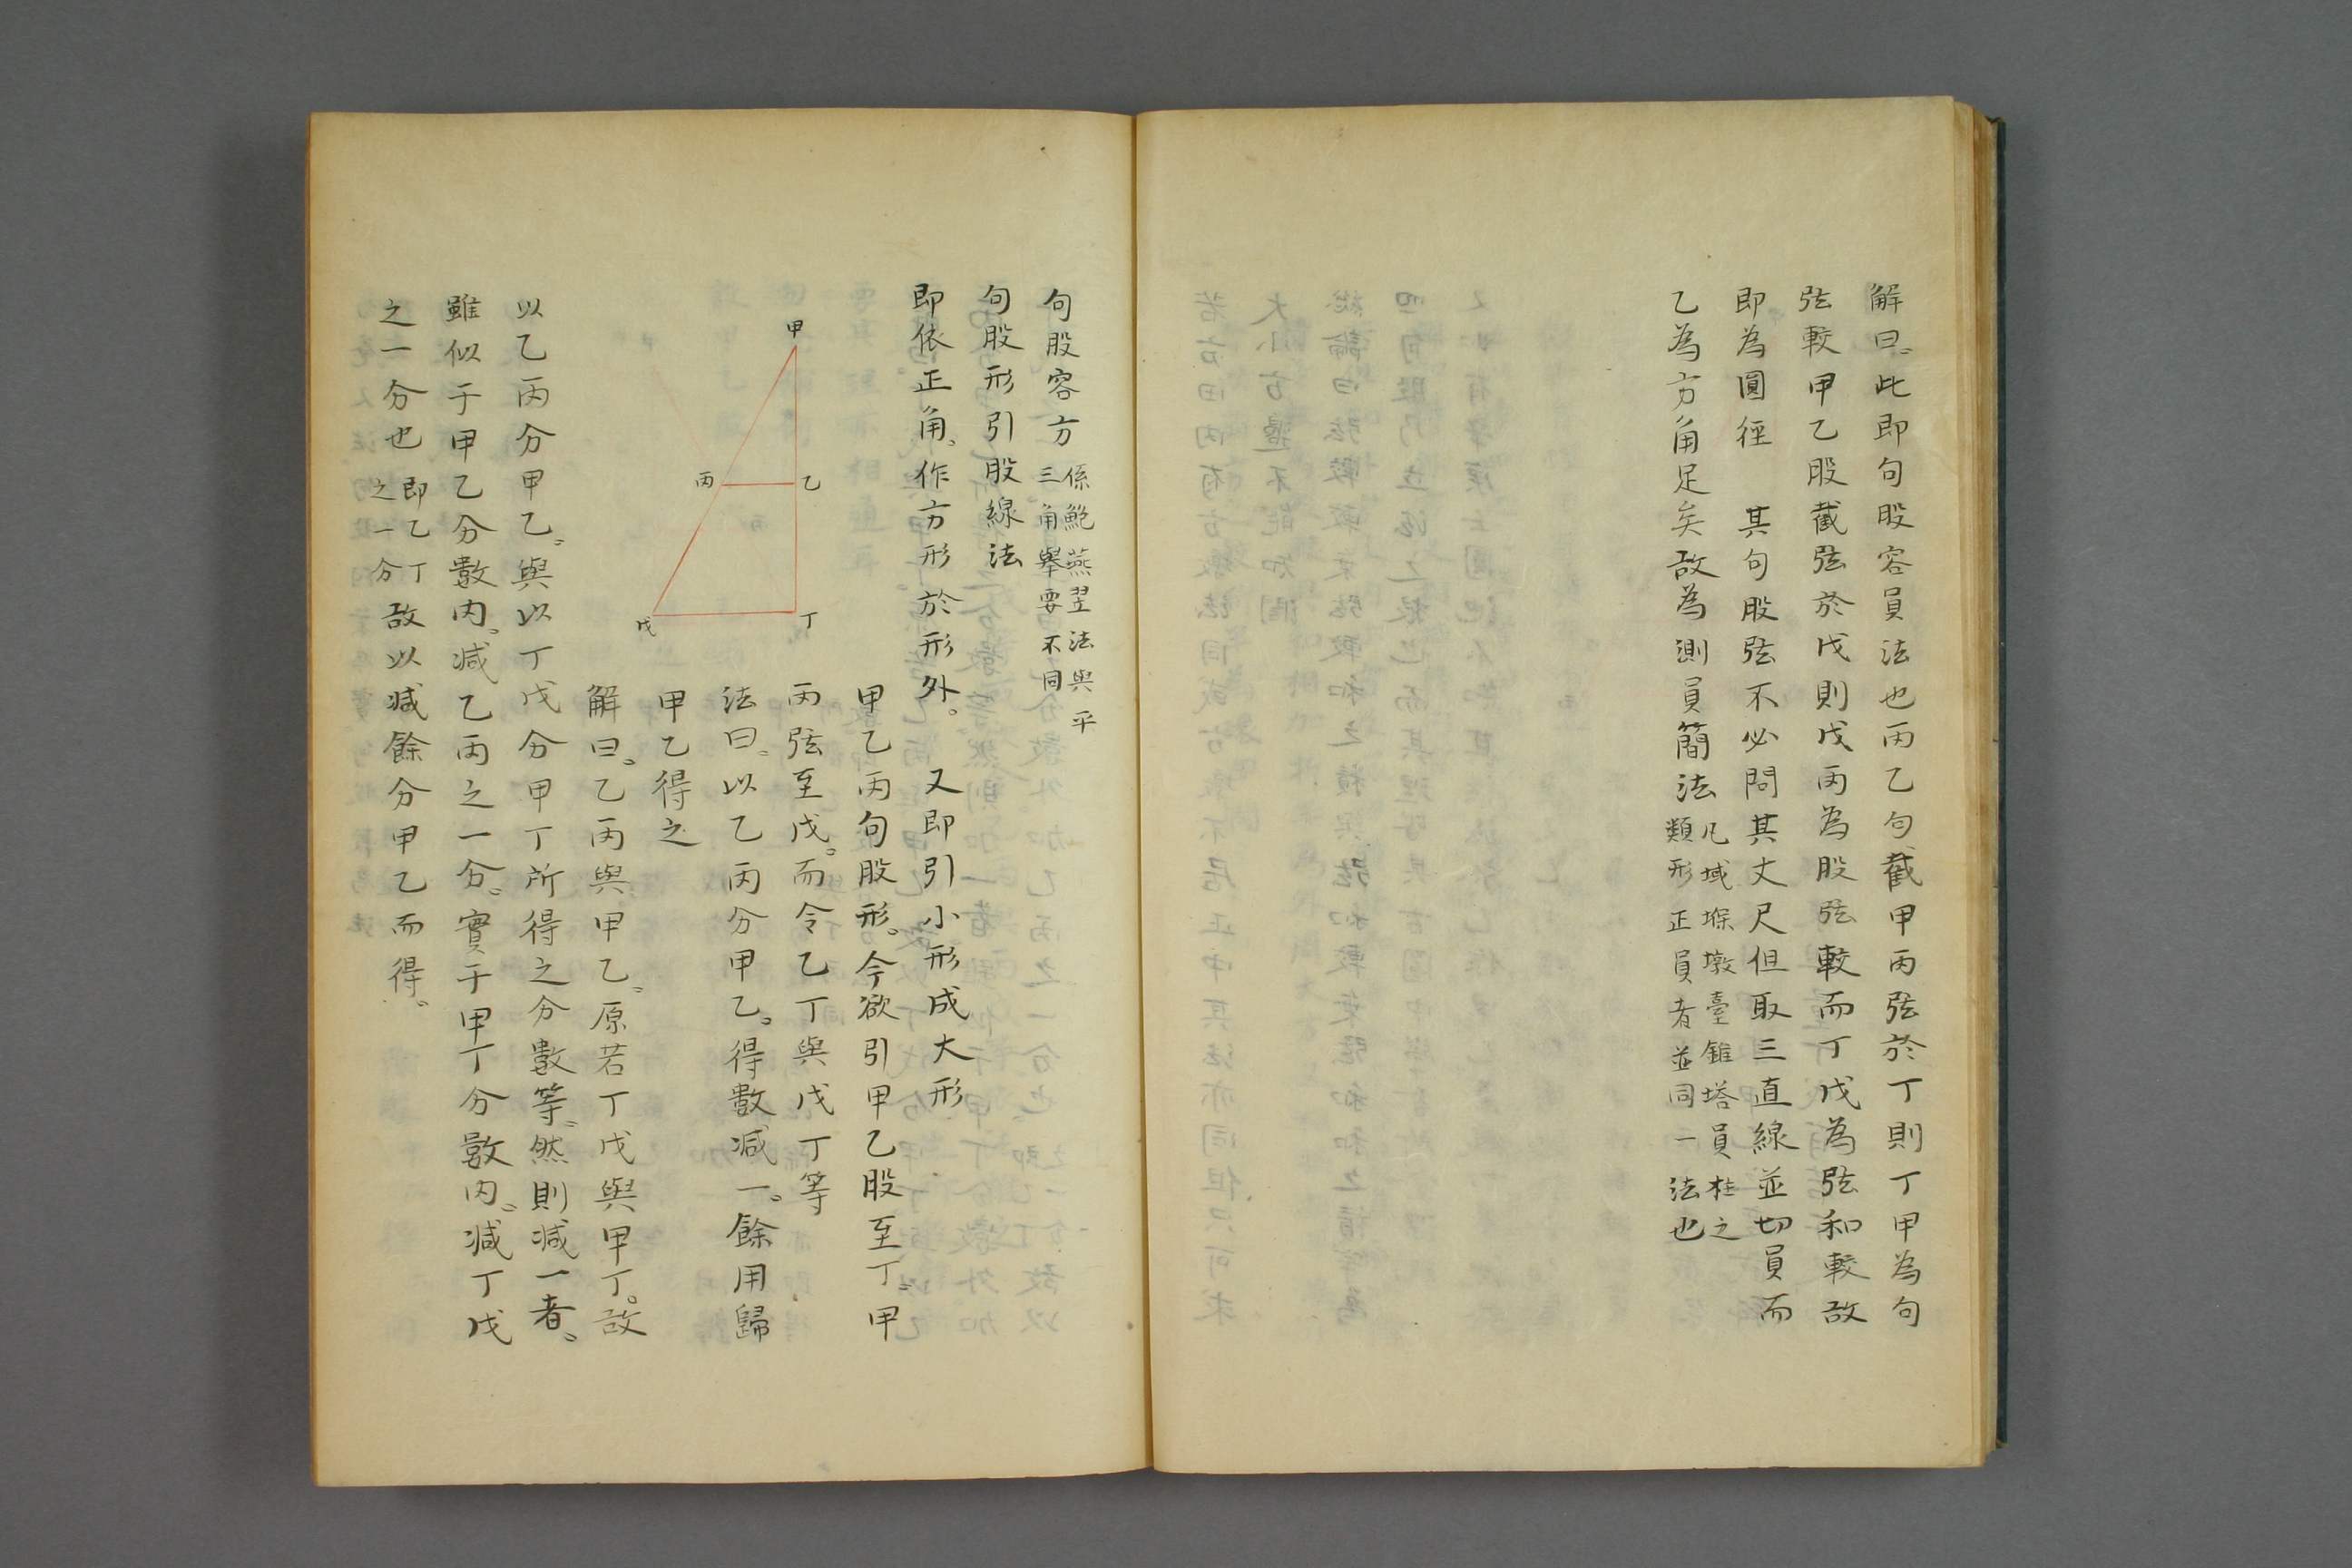 解曰此即句股容員法也丙乙句截甲丙弦於丁則丁甲為句
弦較甲乙股截弦於戊則戊丙為股弦較而丁戊為弦和較故
即為圓徑　其句股弦不必問其丈尺但取三直線並切員而
乙為方角足矣故為測員簡法凡城堢墩臺錐塔員柱之
類形正員者並同一法也
句股容方係鮑燕翌法與平
三角舉要不同
句股形引股線法
即依正角作方形於形外。　又即引小形成大形
甲
乙
丙
丁
戊
甲乙丙句股形。今欲引甲乙股至丁。甲
丙弦至戊。而令乙丁與戊丁等
法曰。以乙丙分甲乙。得數減一。餘用歸
甲乙得之
解曰。乙丙與甲乙。原若丁戊與甲丁。故
以乙丙分甲乙。與以丁戊分甲丁所得之分數等。然則減一者。
雖似于甲乙分數內。減乙丙之一分。實于甲丁分數內。減丁戊
之一分也即乙丁
之一分故以減餘分甲乙而得。